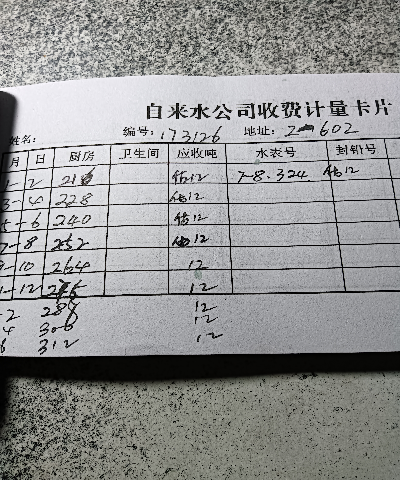 自来水公司收费计量卡片
姓名: 编号: 173126 地址: 2-602
月 日 厨房 卫生间 应收吨 水表号 封铅号
1-2 216 估12 7-8.324 估12
3-4 228 估12
5-6 240 估12
7-8 252 估12
9-10 264 12
1-12 276 12
-2 288 12
4 306 12
6 312 12